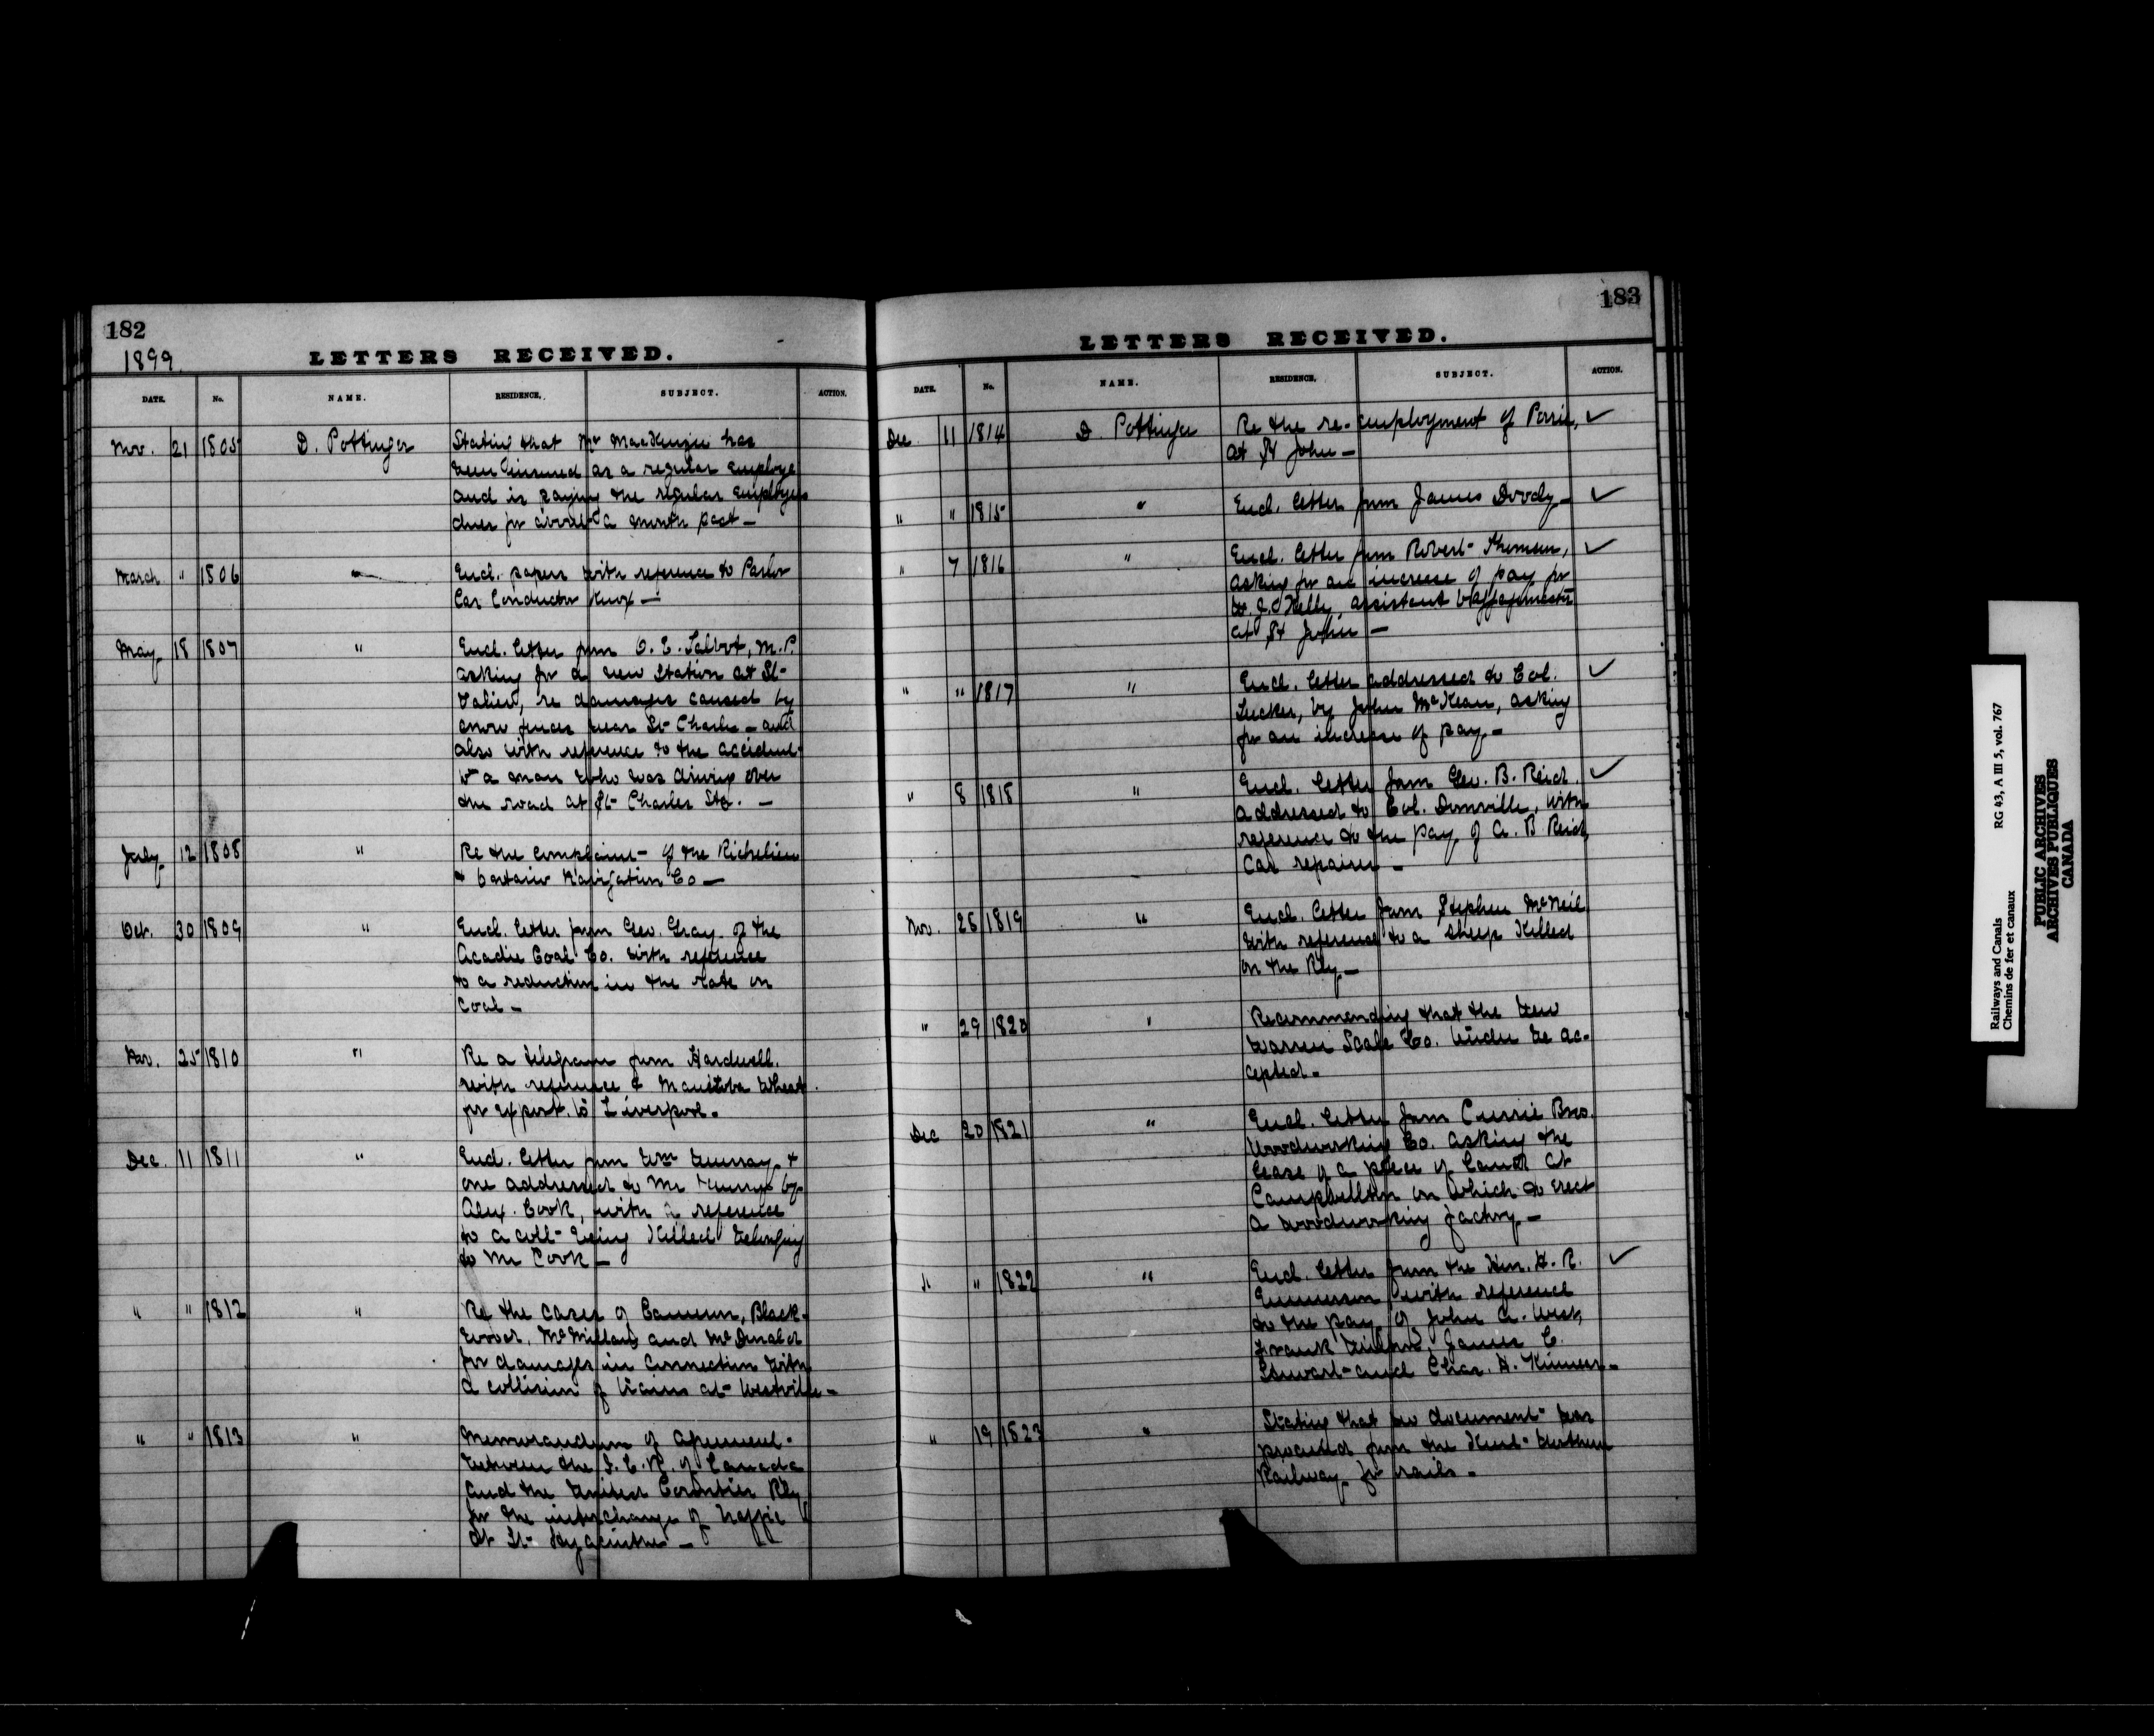 182
1899.
LETTERS RECEIVED.
DATE. No. NAME. RESIDENCE. SUBJECT. ACTION.
Nov. 21 1805 D. Pottinger Stating that Mr MacKenzie has
been insured as a regular employe
and is paying the regular employes
dues for about a month past —
March " 1806 " Encl. papers with reference to Parlor
Car Conductor Knox —
May 18 1807 " Encl. letter from O. E. Talbot, M.P.
asking for a new Station at St-
Valier, re damages caused by
snow fences near St- Charles — and
also with reference to the accident
to a man who was driving over
the road at St- Charles Stn. —
July 12 1808 " Re the complaint of the Richelieu
& Ontario Navigation Co —
Oct. 30 1809 " Encl. letter from Geo. Gray of the
Acadia Coal Co. with reference
to a reduction in the rate on
Coal —
Nov. 25 1810 " Re a telegram from Hardwell,
with reference to Manitoba Wheat
for export to Liverpool.
Dec. 11 1811 " Encl. letter from Wm Murray &
one addressed to Mr by
Alex. Cook, with a reference
to a colt being killed belonging
to Mr Cook —
" " 1812 " Re the cases of Cameron, Black-
wood, McMillan and McDonald
for damages in connection with
a collision of trains at Westville —
" " 1813 " Memorandum of agreement
between the I. C. R. of Canada
and the United Counties Rly
for the interchange of traffic
at St- Hyacinthe —
183
LETTERS RECEIVED.
DATE. No. NAME. RESIDENCE. SUBJECT. ACTION.
Dec 11 1814 D. Pottinger Re the re-employment of ✓
at St John —
" " 1815 " Encl. letter from James Doody — ✓
" 7 1816 " Encl. letter from Robert Thomson, ✓
asking for an increase of pay for
W. J. O'Kelly, assistant baggagemaster
at St John —
" " 1817 " Encl. letter addressed to Col. ✓
Tucker, by John McKean, asking
for an increase of pay —
" 8 1818 " Encl. letter from Geo. B. Reid ✓
addressed to Col. Domville, with
reference to the pay of A. B Reid,
Car repairer —
Nov. 28 1819 " Encl. letter from Stephen McNeil
with reference to a sheep killed
on the Rly —
" 29 1820 " Recommending that the
Warren Scale Co. tender be ac-
cepted —
Dec 20 1821 " Encl. letter from Currie Bros.
Woodworking Co. asking the
lease of a piece of land at
Campbellton on which to erect
a woodworking factory —
" " 1822 " Encl. letter from the Hon. H. R. ✓
Emmerson with reference
to the pay of John A. West,
Frank Wilson, James E.
Stewart and Chas. H. Kinnear —
" 19 1823 " Stating that no document was
from the Kent Northern
Railway for rails.
Railways and Canals RG 43, A III 5, vol. 767
Chemins de fer et canaux
PUBLIC ARCHIVES
ARCHIVES PUBLIQUES
CANADA